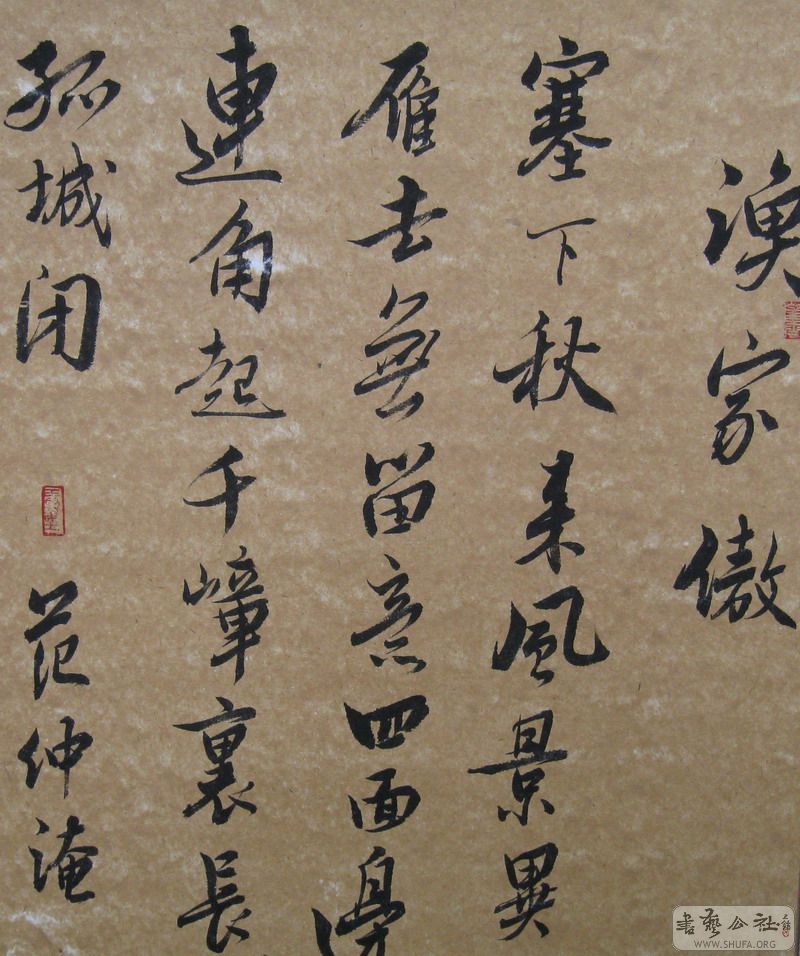 漁家傲
塞下秋来風景異
雁去無留意四面邊
連角起千嶂裏長
孤城闭
范仲淹
書藝公社
WWW.SHUFA.ORG